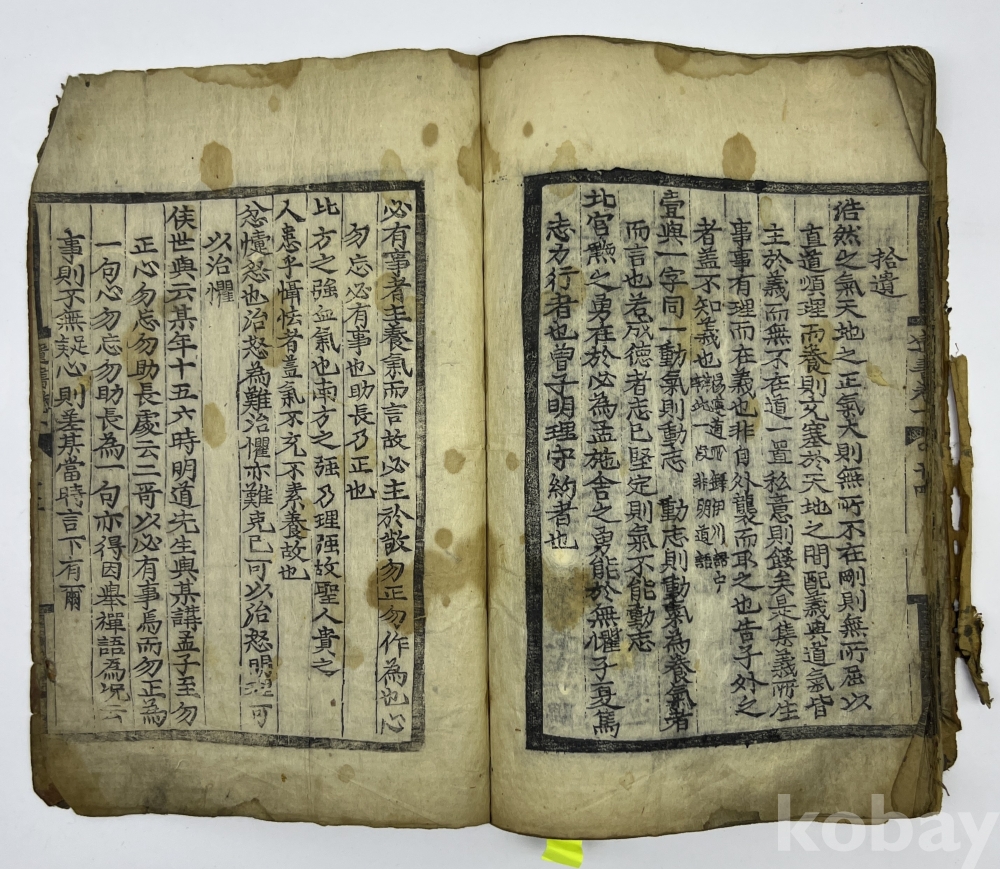 拾遺
浩然之氣天地之正氣大則無所不在剛則無所屈以
直道順理而養則充塞於天地之間配義與道氣皆
主於義而無不在道一置私意則餒矣是集義所生
事事有理而在義也非自外襲而取之也告子外之
者盖不知義也 楊遵道所錄伊川語中
辨此一段非明道語
壹與一字同一動氣則動志 動志則動氣為養氣者
而言也若成德者志已堅定則氣不能動志
北宮黝之勇在於必為孟施舍之勇能於無懼子夏篤
志力行者也曾子明理守約者也
必有事者主養氣而言故必主於敬勿正勿作為也心
勿忘必有事也助長乃正也
比方之强血氣也南方之强乃理强故聖人貴之
人患乎懾怯者盖氣不充不素養故也
忿懥怒也治怒為難治懼亦難克己可以治怒明理可
以治懼
侯世與云某年十五六時明道先生與某講孟子至勿
正心勿忘勿助長處云二哥以必有事焉而勿正為
一句心勿忘勿助長為一句亦得因舉禪語為況云
事則不無疑心則差某當時言下有爾
kobay